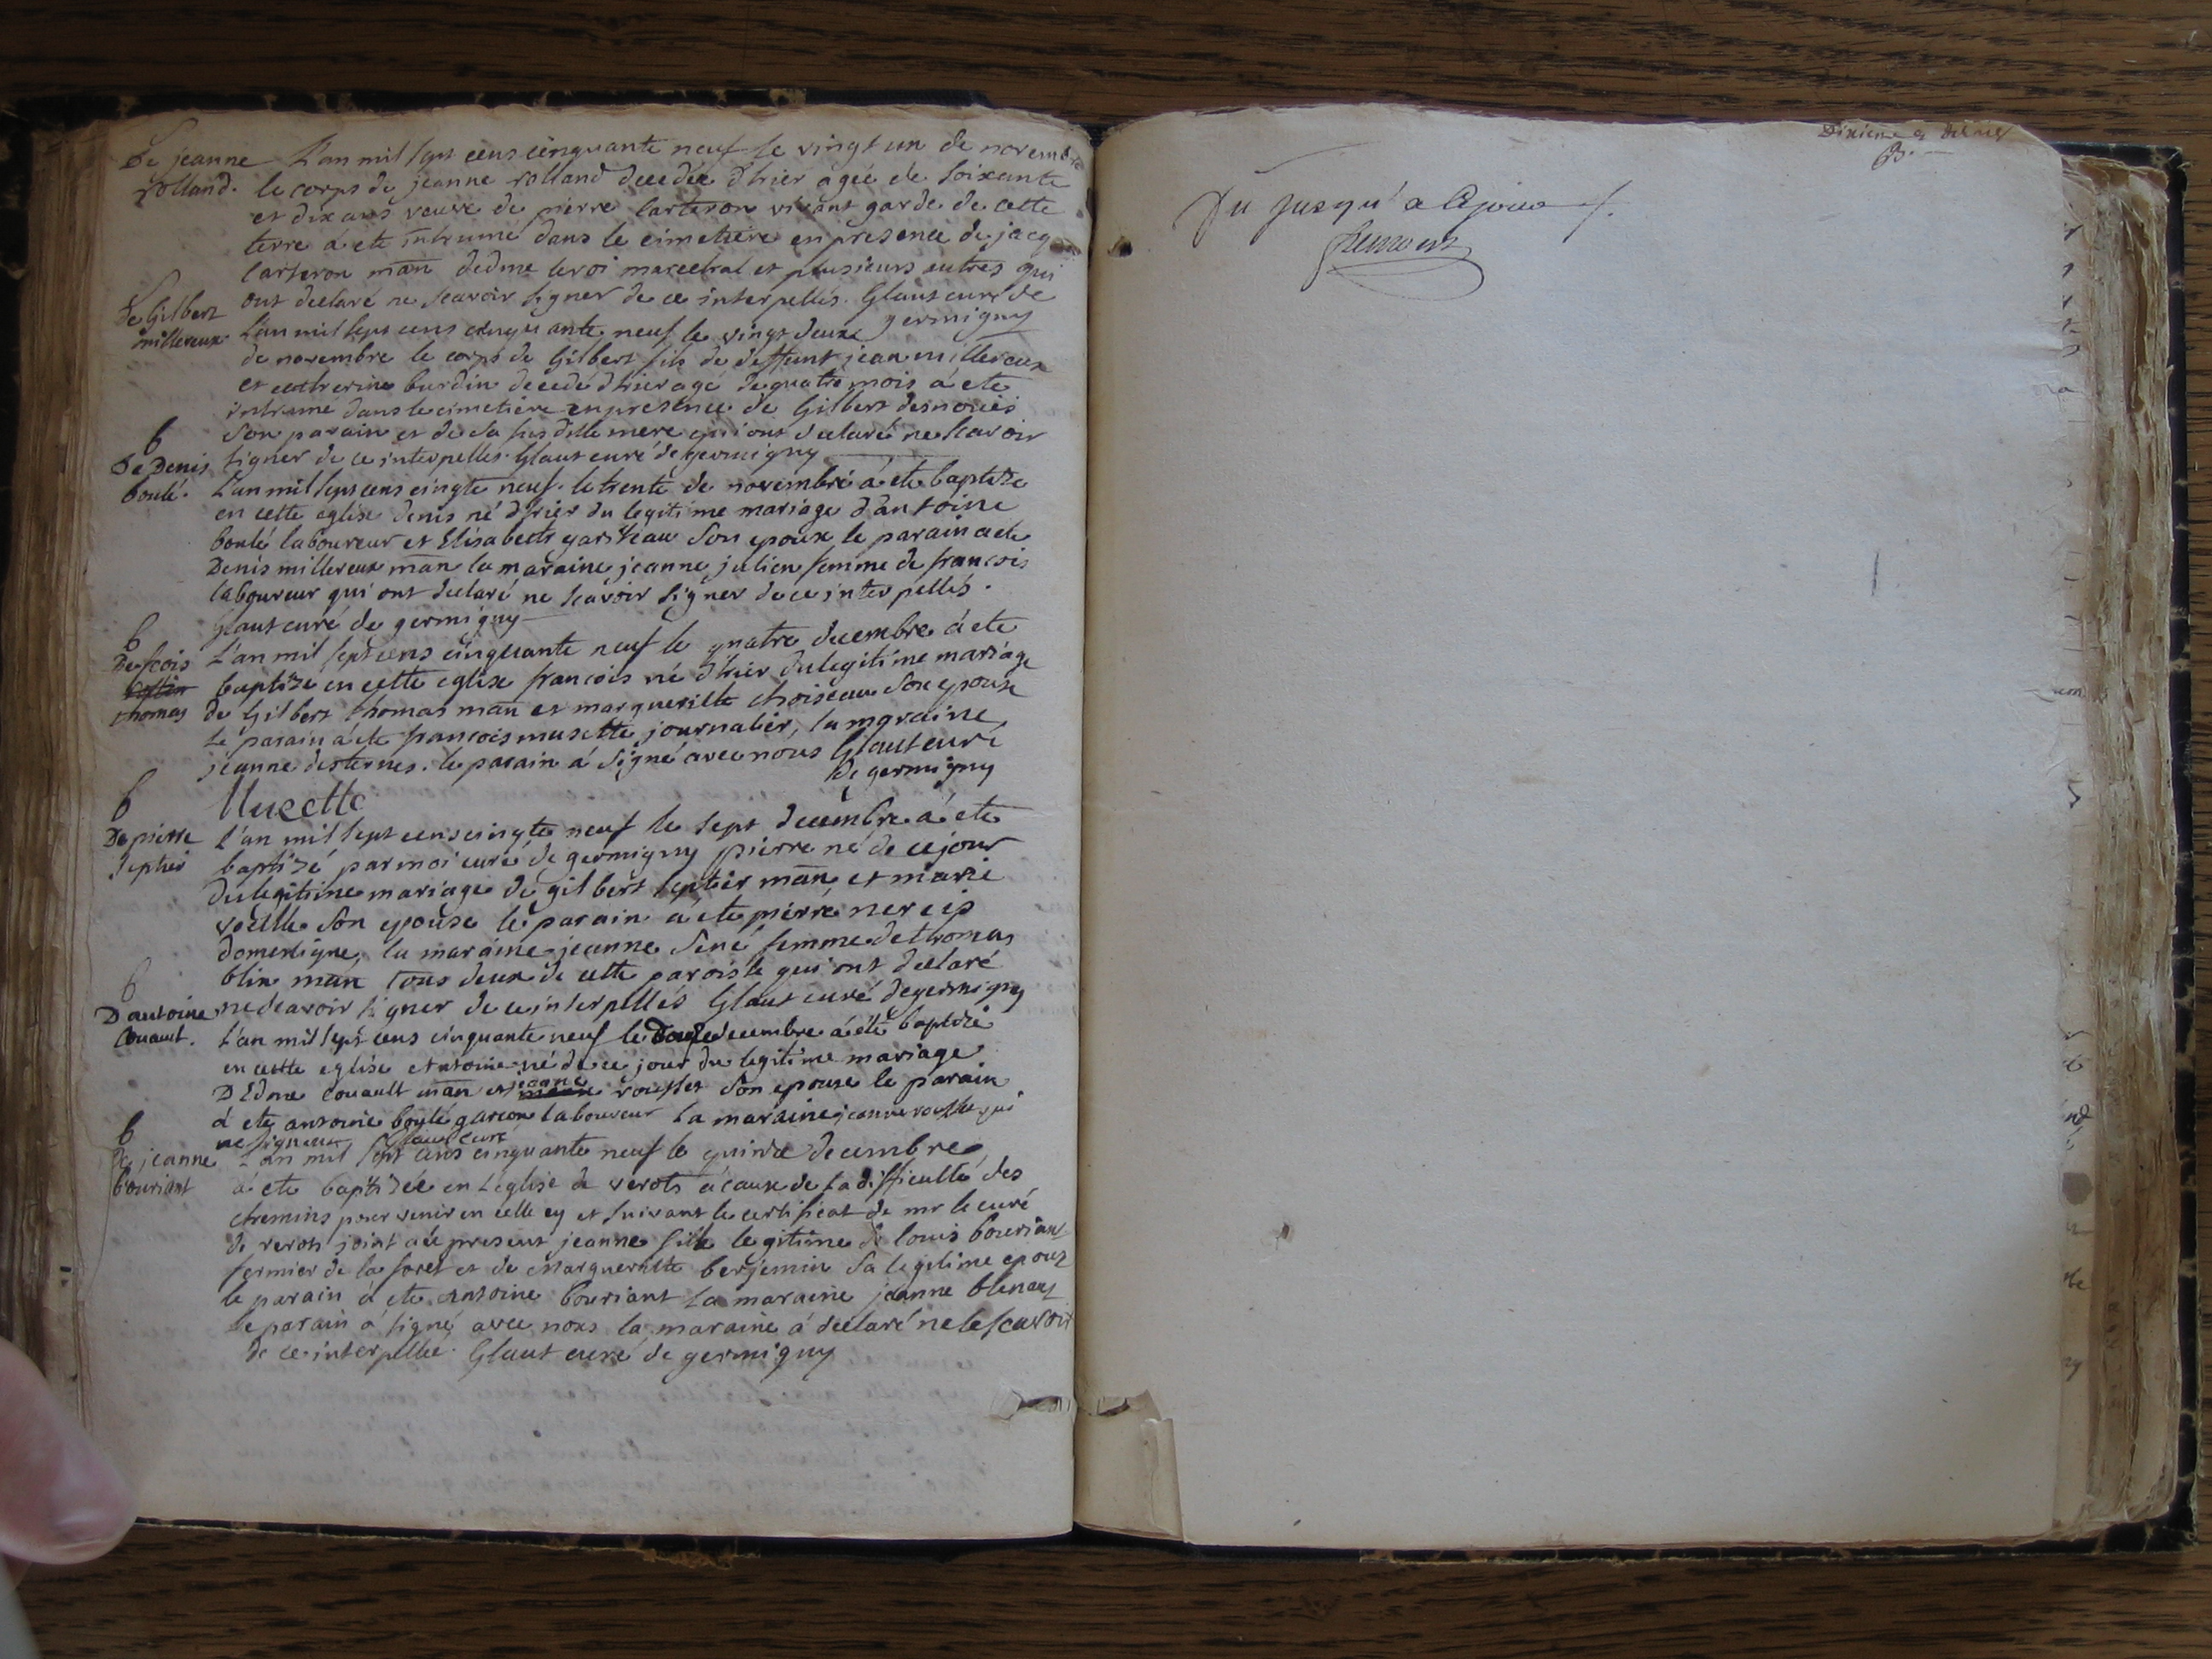 De jeanne
rolland.
L'an mil sept cens cinquante neuf le vingt un de novembre
le corps de jeanne rolland decedée d'hier agée de soixante
et dix ans veuve de pierre carteron vivant garde de cette
terre a ete inhumé dans le cimetiere en presence de jacq
carteron man dedme leroi marechal et plusieurs autres qui
ont declaré ne scavoir signer de ce interpellés. Glaut curé de
germigny
De Gilbert
millereux
L'an mil sept cens cinquante neuf le vingt deux
de novembre le corps de Gilbert fils de deffunt jean millereux
et catherine burdin decedé d'hier agé de quatre mois a ete
inhumé dans le cimetiere en presence de Gilbert desnoues
son parain et de sa sus ditte mere qui ont declaré ne scavoir
signer de ce interpellés. Glaut curé de germigny
b
De Denis
boulé.
L'an mil sept cens cinqte neuf le trente de novembre a ete baptize
en cette eglise denis né d'hier du legitime mariage d'antoine
boulé laboureur et Elisabeth son epouse le parain a ete
Denis millereux man la maraine jeanne julien femme de francois
laboureur qui ont declaré ne scavoir signer de ce interpellés.
Glaut curé de germigny
b
De fcois
thomas
L'an mil sept cens cinquante neuf le quatre decembre a ete
baptizé en cette eglise francois né d'hier du legitime mariage
de Gilbert thomas man et marguerilte choiseau son epouse
Le parain a ete francois musette journalier, la maraine
jeanne desternes. le parain a signé avec nous Glaut curé
de germigny
Muzette
b
De pierre
septier
L'an mil sept cens cinqte neuf le sept decembre a ete
baptizé par moi curé de germigny pierre né de ce jour
du legitime mariage de gilbert septier man et marie
son epouse le parain a ete pierre nercis
domestique, la maraine jeanne sené femme de thomas
blin man tous deux de cette paroisse qui ont declaré
ne scavoir signer de ce interpellés Glaut curé de germigny
b
D'antoine
Couault.
L'an mil sept cens cinquante neuf le douze decembre a été baptizé
en cette eglise antoine né de ce jour du legitime mariage
D'Edme couault man et jeanne son epouse le parain
a ete antoine boulé garcon laboureur la maraine jeanne qui
ne signent, Glaut curé
b
De jeanne
bouriant
L'an mil sept cens cinquante neuf le quinze decembre
a ete baptizée en l'eglise de verots a cause de la difficulté des
chemins pour venir en celle cy et suivant le certificat de mr le curé
de verots joint au present jeanne fille legitime de louis bouriant
fermier de la foret et de Marguerilte berjemin sa legitime epouz
le parain a ete Antoine bouriant la maraine jeanne
le parain a signé avec nous la maraine a declaré ne le scavoir
de ce interpellée. Glaut curé de germigny
Dixieme &
B.
Vu jusqu'a ce jour